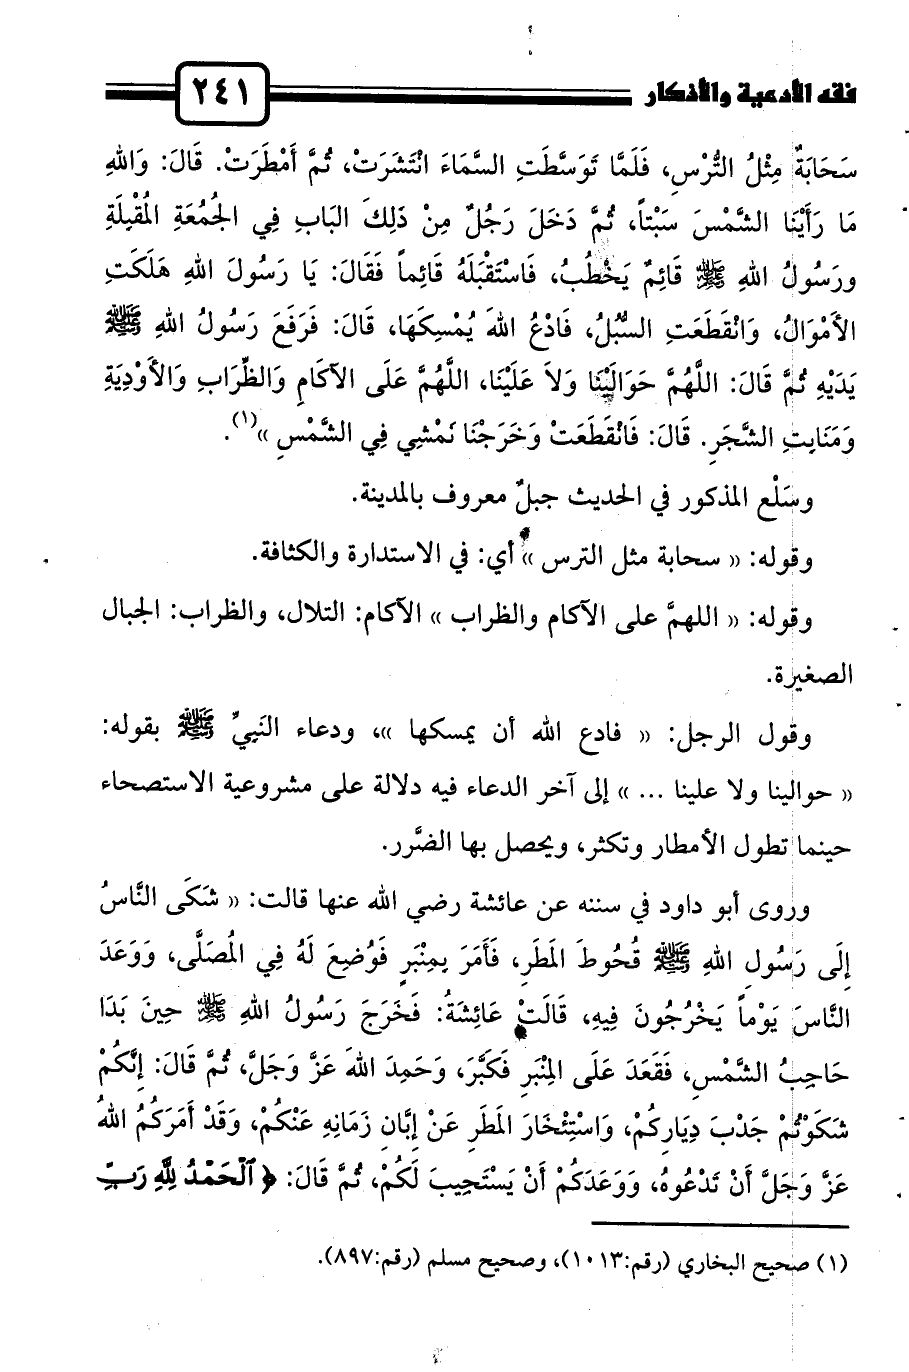 فقه الأدعية والأذكار ٢٤١
سَحَابَةٌ مِثْلُ التُّرْسِ، فَلَمَّا تَوَسَّطَتِ السَّمَاءَ انْتَشَرَتْ، ثُمَّ أَمْطَرَتْ. قَالَ: وَاللهِ
مَا رَأَيْنَا الشَّمْسَ سَبْتاً، ثُمَّ دَخَلَ رَجُلٌ مِنْ ذَلِكَ البَابِ فِي الجُمُعَةِ المُقْبِلَةِ
ورَسُولُ اللهِ ﷺ قَائِمٌ يَخْطُبُ، فَاسْتَقْبَلَهُ قَائِماً فَقَالَ: يَا رَسُولَ اللهِ هَلَكَتِ
الأَمْوَالُ، وَانْقَطَعَتِ السُّبُلُ، فَادْعُ اللهَ يُمْسِكِهَا، قَالَ: فَرَفَعَ رَسُولُ اللهِ ﷺ
يَدَيْهِ ثُمَّ قَالَ: اللَّهُمَّ حَوَالَيْنَا وَلاَ عَلَيْنَا، اللَّهُمَّ عَلَى الآكَامِ وَالظِّرَابِ وَالأَوْدِيَةِ
وَمَنَابِتِ الشَّجَرِ. قَالَ: فَانْقَطَعَتْ وَخَرَجْنَا نَمْشِي فِي الشَّمْسِ »(١).
وسَلْع المذكور في الحديث جبلٌ معروف بالمدينة.
وقوله: « سحابة مثل الترس » أي: في الاستدارة والكثافة.
وقوله: « اللهمَّ على الآكام والظراب » الآكام: التلال، والظراب: الجبال
الصغيرة.
وقول الرجل: « فادع الله أن يمسكها »، ودعاء النَبِيِّ ﷺ بقوله:
« حوالينا ولا علينا ... » إلى آخر الدعاء فيه دلالة على مشروعية الاستصحاء
حينما تطول الأمطار وتكثر، ويحصل بها الضَّرر.
وروى أبو داود في سننه عن عائشة رضي الله عنها قالت: « شَكَى النَّاسُ
إِلَى رَسُولِ اللهِ ﷺ قُحُوطَ المَطَرِ، فَأَمَرَ بِمِنْبَرٍ فَوُضِعَ لَهُ فِي المُصَلَّى، وَوَعَدَ
النَّاسَ يَوْماً يَخْرُجُونَ فِيهِ، قَالَتْ عَائِشَةُ: فَخَرَجَ رَسُولُ اللهِ ﷺ حِينَ بَدَا
حَاجِبُ الشَّمْسِ، فَقَعَدَ عَلَى المِنْبَرِ فَكَبَّرَ، وَحَمِدَ اللهَ عَزَّ وَجَلَّ، ثُمَّ قَالَ: إِنَّكُمْ
شَكَوْتُمْ جَدْبَ دِيَارِكُمْ، وَاسْتِئْخَارَ المَطَرِ عَنْ إِبَّانِ زَمَانِهِ عَنْكُمْ، وَقَدْ أَمَرَكُمُ اللهُ
عَزَّ وَجَلَّ أَنْ تَدْعُوهُ، وَوَعَدَكُمْ أَنْ يَسْتَجِيبَ لَكُمْ، ثُمَّ قَالَ: ﴿ ٱلْحَمْدُ لِلَّهِ رَبِّ
(١) صحيح البخاري (رقم:١٠١٣)، وصحيح مسلم (رقم:٨٩٧).